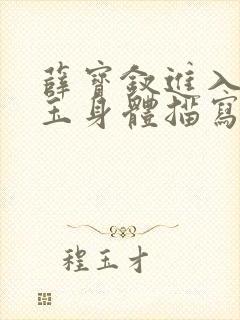 薛寶釵進入
玉身體描寫
程玉才